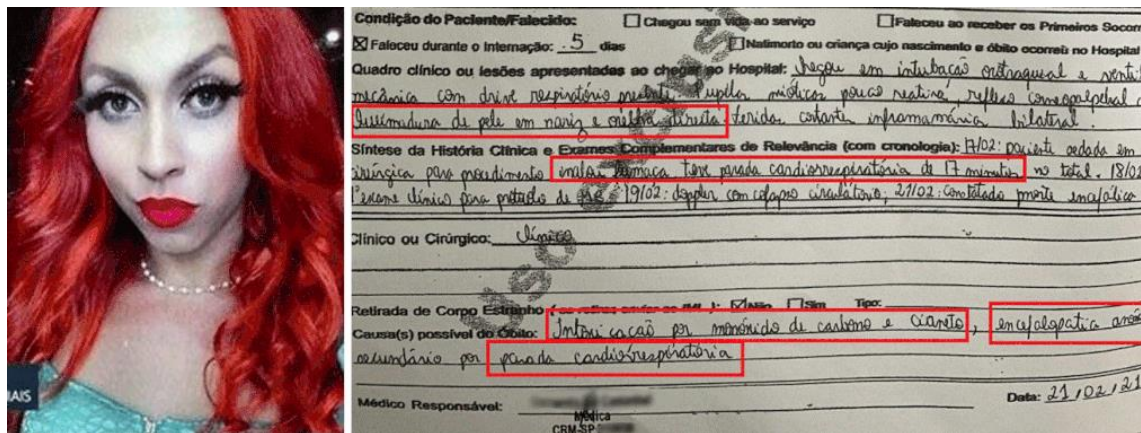 AIS
Condição do Paciente/Falecido: ☐ Chegou sem vida ao serviço ☐ Faleceu ao receber os Primeiros Socorr
☒ Faleceu durante o Internação: 5 dias ☐ Natimorto ou criança cujo nascimento e óbito ocorreu no Hospital
Quadro clínico ou lesões apresentadas ao chegar ao Hospital: chegou em intubação orotraqueal e ventil
mecânica com drive respiratório presente. Pupilas mióticas pouco reativa, reflexo corneopalpebral
Queimadura de pele em nariz e orelha direita. ferida cortante inframamária bilateral.
Síntese da História Clínica e Exames Complementares de Relevância (com cronologia): 17/02: paciente sedada em
cirúrgica para procedimento inalou fumaça teve parada cardiorrespiratória de 17 minutos no total. 18/02
1º exame clínico para protocolo de 19/02: doppler com colapso circulatório, 21/02: constatado morte encefálica
Clínico ou Cirúrgico: Clínico
Retirada de Corpo Estranho ☒ Não ☐ Sim Tipo:
Causa(s) possível do Óbito: Intoxicação por monóxido de carbono e cianeto, encefalopatia anóx
secundário por parada cardiorrespiratória
Médico Responsável:
Data: 21/02/21
Médica
CRM-SP